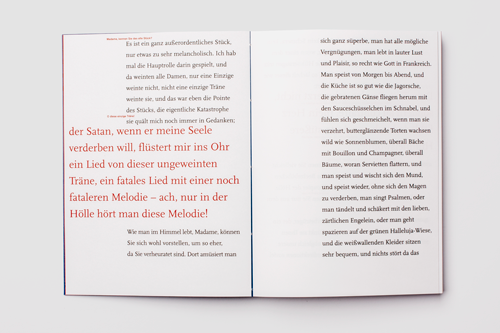 Es ist ein ganz außerordentliches Stück,
nur etwas zu sehr melancholisch. Ich hab
mal die Hauptrolle darin gespielt, und
da weinten alle Damen, nur eine Einzige
weinte nicht, nicht eine einzige Träne
weinte sie, und das war eben die Pointe
des Stücks, die eigentliche Katastrophe
sie quält mich noch immer in Gedanken;
der Satan, wenn er meine Seele
verderben will, flüstert mir ins Ohr
ein Lied von dieser ungeweinten
Träne, ein fatales Lied mit einer noch
fataleren Melodie – ach, nur in der
Hölle hört man diese Melodie!
Wie man im Himmel lebt, Madame, können
Sie sich wohl vorstellen, um so eher,
da Sie verheuratet sind. Dort amüsiert man
sich ganz süperbe, man hat alle mögliche
Vergnügungen, man lebt in lauter Lust
und Plaisir, so recht wie Gott in Frankreich.
Man speist von Morgen bis Abend, und
die Küche ist so gut wie die Jagorsche,
die gebratenen Gänse fliegen herum mit
den Sauceschüsselchen im Schnabel, und
fühlen sich geschmeichelt, wenn man sie
verzehrt, butterglänzende Torten wachsen
wild wie Sonnenblumen, überall Bäche
mit Bouillon und Champagner, überall
Bäume, woran Servietten flattern, und
man speist und wischt sich den Mund,
und speist wieder, ohne sich den Magen
zu verderben, man singt Psalmen, oder
man tändelt und schäkert mit den lieben,
zärtlichen Engelein, oder man geht
spazieren auf der grünen Halleluja-Wiese,
und die weißwallenden Kleider sitzen
sehr bequem, und nichts stört da das